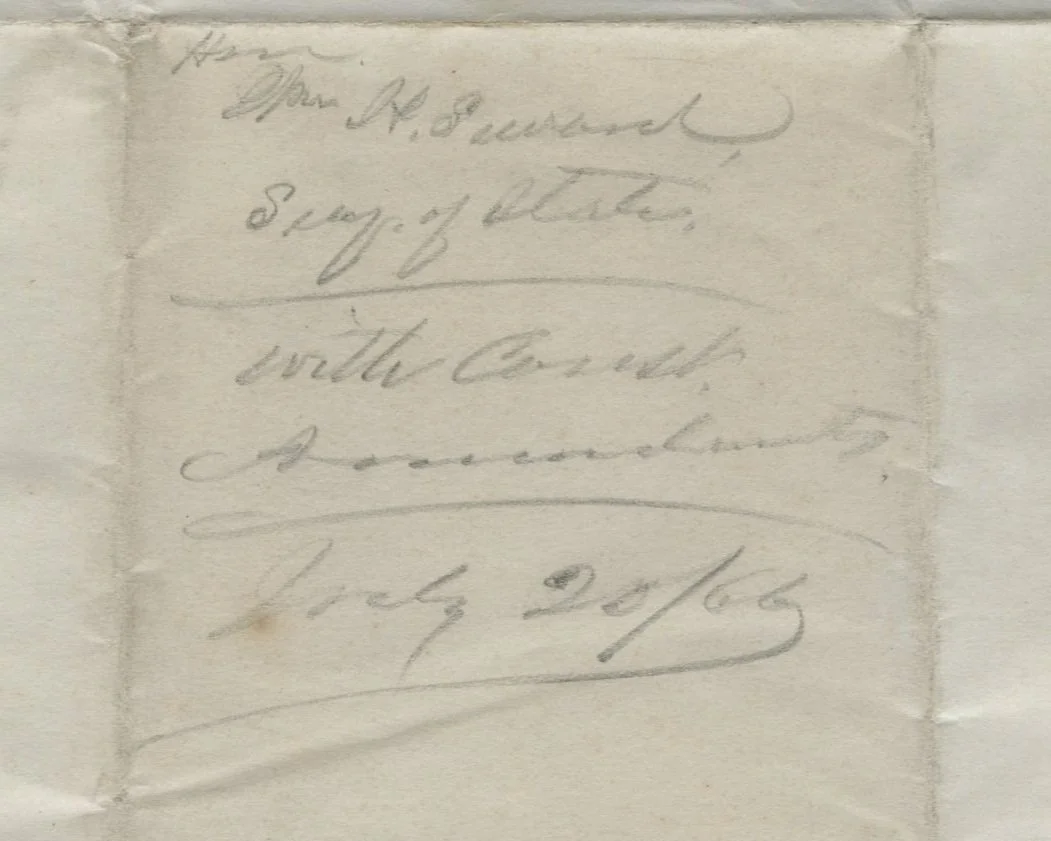 Hon.
Wm H. Seward,
Secy. of State.
with Const.
Amendments.
July 20/66